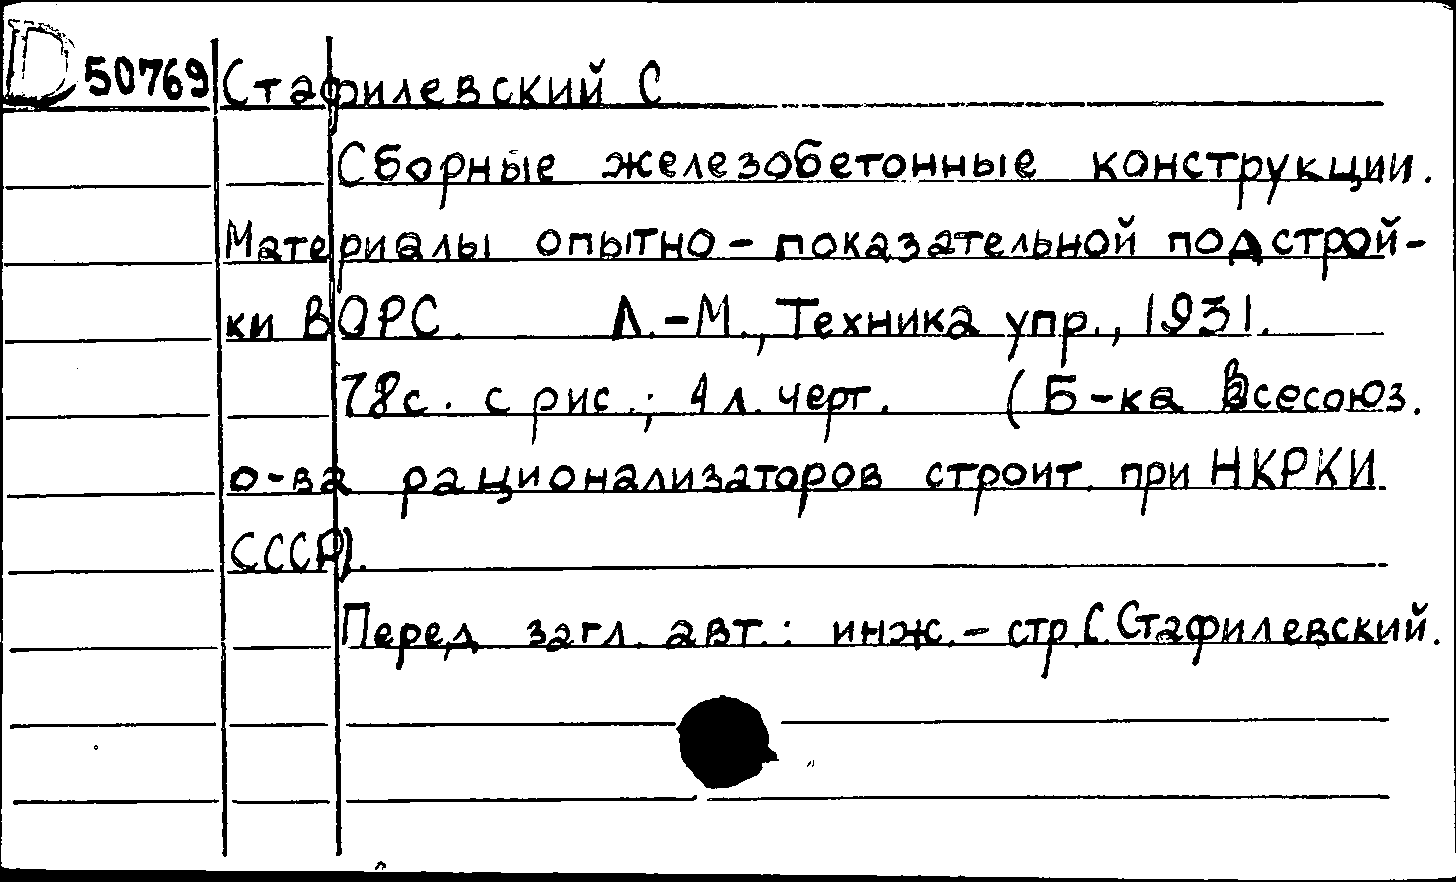 D 50769 Стафилевский С
Сборные железобетонные конструкции.
Материалы опытно-показательной подстрой-
ки ВОРС. Л.-М., Техника упр., 1931.
78с. с рис.; 4л. черт. (Б-ка Всесоюз.
о-ва рационализаторов строит. при НКРКИ
СССР).
Перед загл. авт.: инж.-стр. С. Стафилевский.